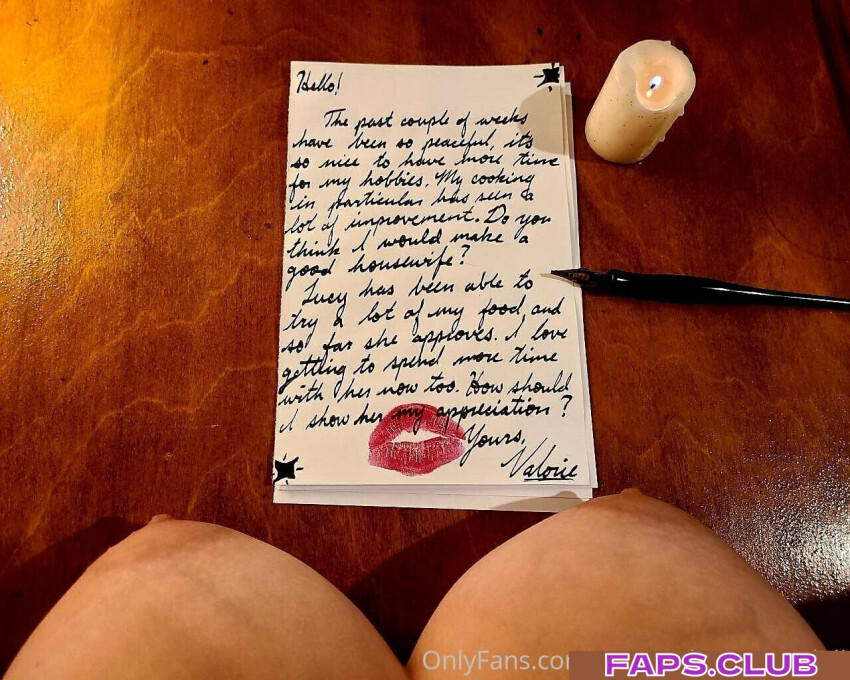 Hello!
The past couple of weeks
have been so peaceful, it's
so nice to have more time
for my hobbies. My cooking
in particular has seen a
lot of improvement. Do you
think I would make a
good housewife?
Lucy has been able to
try a lot of my food, and
so far she approves. I love
getting to spend more time
with her now too. How should
I show her my appreciation?
Yours,
Valorie
OnlyFans.com
FAPS.CLUB